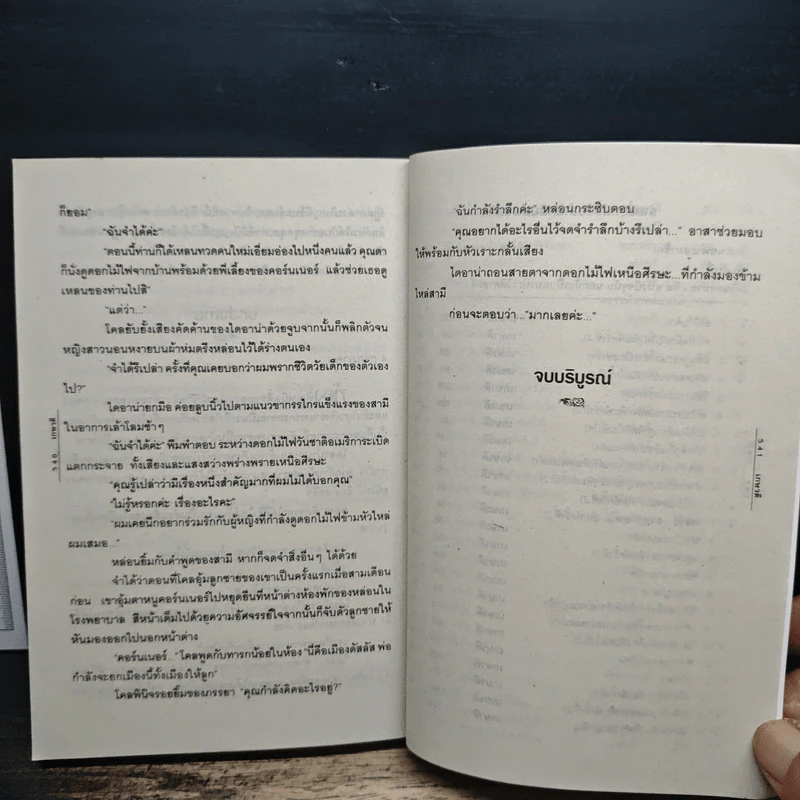 ก็ยอม"
"ฉันจำได้ค่ะ"
"ตอนนี้ท่านก็ได้เหลนทวดคนใหม่เอี่ยมอ่องไปหนึ่งคนแล้ว คุณตา
ก็นั่งดูดอกไม้ไฟจากบ้านพร้อมด้วยพี่เลี้ยงของคอร์นเนอร์ แล้วช่วยเธอดู
เหลนของท่านไปสิ"
"แต่ว่า..."
โคลยับยั้งเสียงคัดค้านของไดอาน่าด้วยจูบจากนั้นก็พลิกตัวจน
หญิงสาวนอนหงายบนผ้าห่มตรึงหล่อนไว้ใต้ร่างตนเอง
"จำได้รึเปล่า ครั้งที่คุณเคยบอกว่าผมพรากชีวิตวัยเด็กของตัวเอง
ไป?"
ไดอาน่ายกมือ ค่อยลูบนิ้วไปตามแนวขากรรไกรแข็งแรงของสามี
ในอาการเล้าโลมช้าๆ
"ฉันจำได้ค่ะ" พึมพำตอบ ระหว่างดอกไม้ไฟวันชาติอเมริการะเบิด
แตกกระจาย ทั้งเสียงและแสงสว่างพร่างพรายเหนือศีรษะ
"คุณรู้เปล่าว่ามีเรื่องหนึ่งสำคัญมากที่ผมไม่ได้บอกคุณ"
"ไม่รู้หรอกค่ะ เรื่องอะไรคะ"
"ผมเคยนึกอยากร่วมรักกับผู้หญิงที่กำลังดูดอกไม้ไฟข้ามหัวไหล่
ผมเสมอ..."
หล่อนยิ้มกับคำพูดของสามี หากก็จดจำสิ่งอื่นๆ ได้ด้วย
จำได้ว่าตอนที่โคลอุ้มลูกชายของเขาเป็นครั้งแรกเมื่อสามเดือน
ก่อน เขาอุ้มตาหนูคอร์นเนอร์ไปหยุดยืนที่หน้าต่างห้องพักของหล่อนใน
โรงพยาบาล สีหน้าเต็มไปด้วยความอัศจรรย์ใจจากนั้นก็จับตัวลูกชายให้
หันมองออกไปนอกหน้าต่าง
"คอร์นเนอร์..." โคลพูดกับทารกน้อยในห้อง "นี่คือเมืองดัสลัส พ่อ
กำลังจะยกเมืองนี้ทั้งเมืองให้ลูก"
โคลพินิจรอยยิ้มของภรรยา "คุณกำลังคิดอะไรอยู่?"
540 เกษวดี
"ฉันกำลังรำลึกค่ะ" หล่อนกระซิบตอบ
"คุณอยากได้อะไรอื่นไว้จดจำรำลึกบ้างรึเปล่า..." อาสาช่วยมอบ
ให้พร้อมกับหัวเราะกลั้นเสียง
ไดอาน่าถอนสายตาจากดอกไม้ไฟเหนือศีรษะ...ที่กำลังมองข้าม
ไหล่สามี
ก่อนจะตอบว่า..."มากเลยค่ะ..."
จบบริบูรณ์
541 เกษวดี